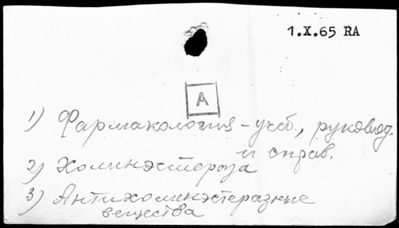 1.X.65 RA
A
1) Фармакология - учеб., руковод.
и справ.
2) Холинэстераза
3) Антихолинэстеразные
вещества